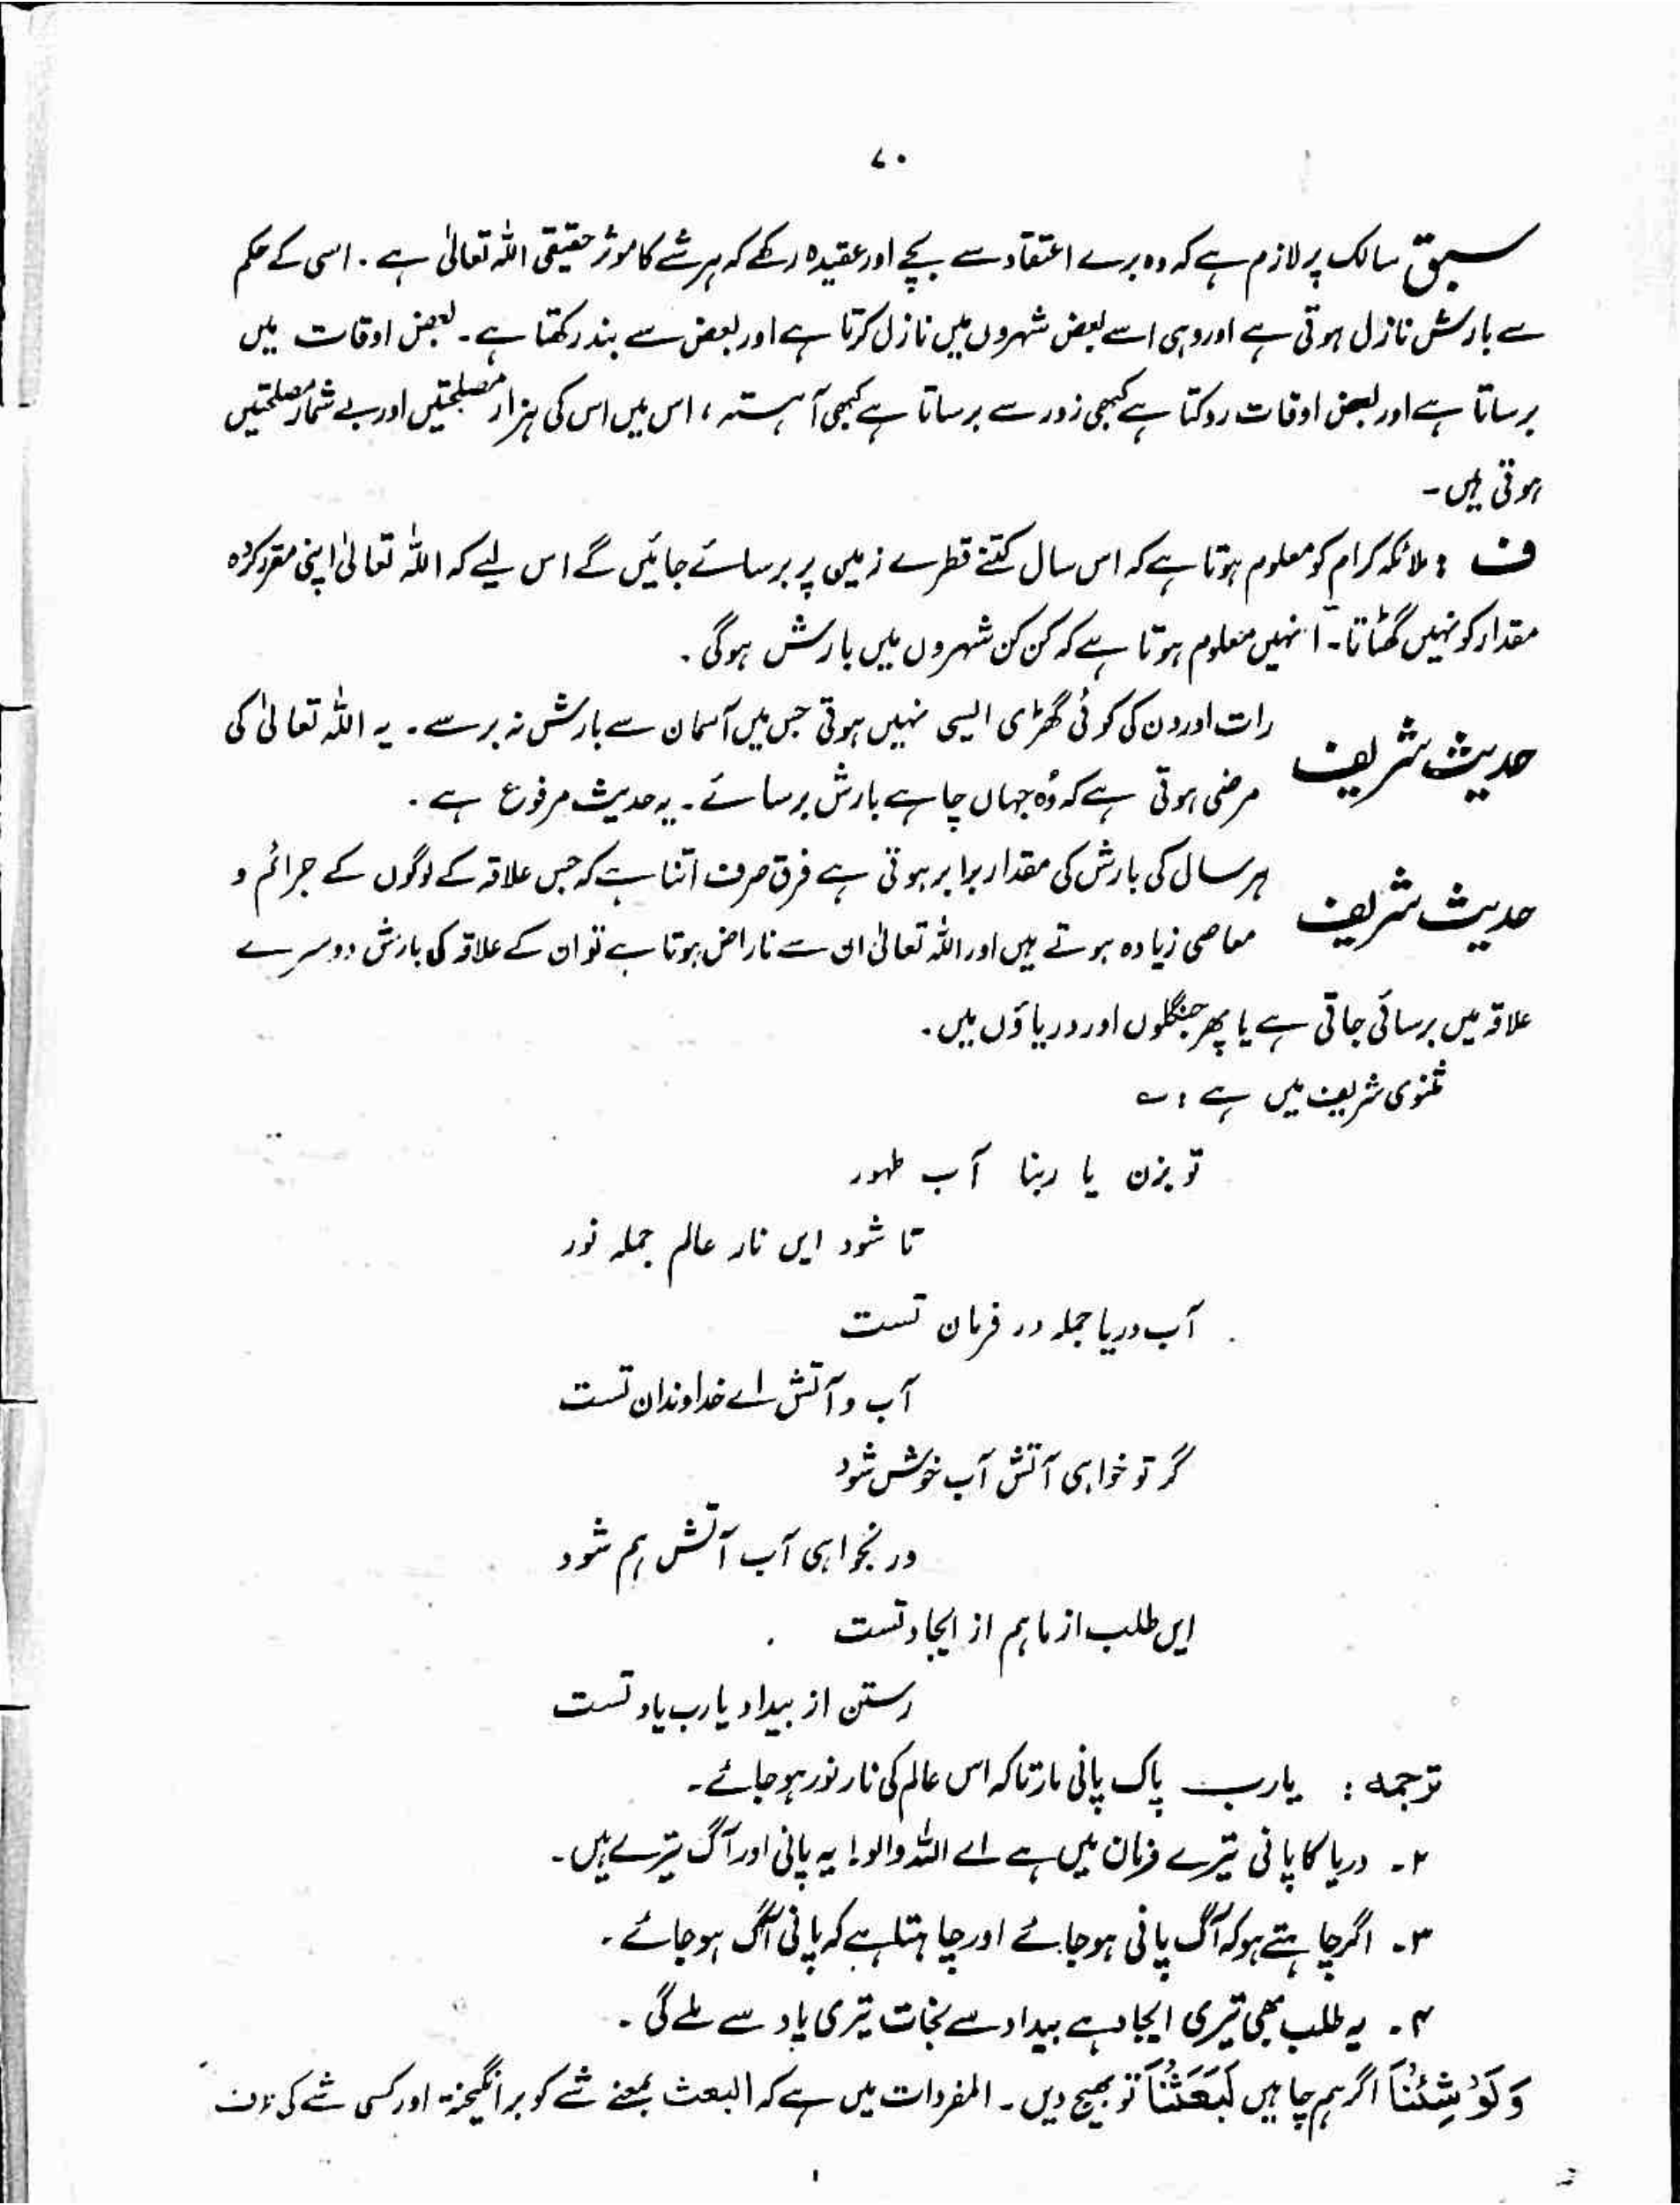 ۷۰
سبق سالک پر لازم ہے کہ وہ برے اعتقاد سے بچے اور عقیدہ رکھے کہ ہر شے کا موثر حقیقی اللہ تعالیٰ ہے ۔ اسی کے حکم
سے بارش نازل ہوتی ہے اور وہی اسے بعض شہروں میں نازل کرتا ہے اور بعض سے بند رکھتا ہے ۔ بعض اوقات میں
برساتا ہے اور بعض اوقات روکتا ہے کبھی زور سے برساتا ہے کبھی آہستہ ، اس میں اس کی ہزار مصلحتیں اور بے شمار مصلحتیں
ہوتی ہیں ۔
ف : ملائکہ کرام کو معلوم ہوتا ہے کہ اس سال کتنے قطرے زمین پر برسائے جائیں گے اس لیے کہ اللہ تعالیٰ اپنی مقرر کردہ
مقدار کو نہیں گھٹاتا ۔ انہیں معلوم ہوتا ہے کہ کن کن شہروں میں بارش ہوگی ۔
حدیث شریف رات اور دن کی کوئی گھڑی ایسی نہیں ہوتی جس میں آسمان سے بارش نہ برسے ۔ یہ اللہ تعالیٰ کی
مرضی ہوتی ہے کہ وُہ جہاں چاہے بارش برسائے ۔ یہ حدیث مرفوع ہے ۔
حدیث شریف ہر سال کی بارش کی مقدار برابر ہوتی ہے فرق صرف اتنا ہے کہ جس علاقہ کے لوگوں کے جرائم و
معاصی زیادہ ہوتے ہیں اور اللہ تعالیٰ ان سے ناراض ہوتا ہے تو ان کے علاقہ کی بارش دوسرے
علاقہ میں برسائی جاتی ہے یا پھر جنگلوں اور دریاؤں میں ۔
مثنوی شریف میں ہے : ؎
تو بزن یا ربنا آب طہور
تا شود ایں نار عالم جملہ نور
آب دریا جملہ در فرمان تست
آب و آتش اے خداوندان تست
گر تو خواہی آتش آب خوش شود
ور نخواہی آب آتش ہم شود
ایں طلب از ما ہم از ایجاد تست
رستن از بیداد یارب یاد تست
ترجمہ : یارب پاک پانی مار تاکہ اس عالم کی نار نور ہو جائے ۔
۲۔ دریا کا پانی تیرے فرمان میں ہے اے اللہ والو! یہ پانی اور آگ تیرے ہیں ۔
۳۔ اگر چاہتے ہو کہ آگ پانی ہو جائے اور چاہتا ہے کہ پانی آگ ہو جائے ۔
۴۔ یہ طلب بھی تیری ایجاد ہے بیداد سے نجات تیری یاد سے ملے گی ۔
وَلَوْ شِئْنَا اگر ہم چاہیں لَبَعَثْنَا تو بھیج دیں ۔ المفردات میں ہے کہ البعث بمعنے شے کو برانگیختہ اور کسی شے کی طرف